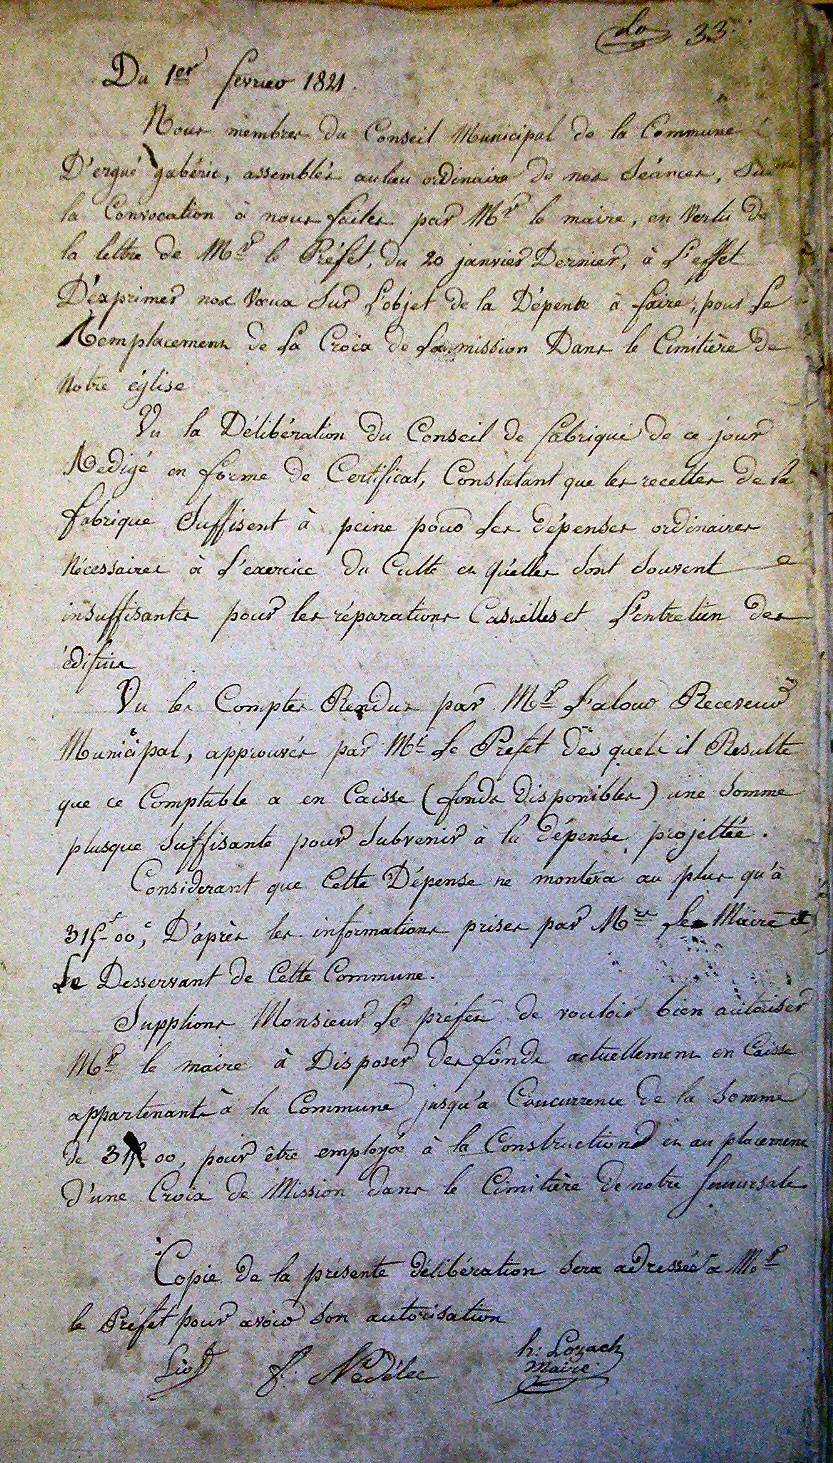 33
Du 1er fevrier 1821.
Nous membres du Conseil Municipal de la Commune
D'ergué gabéric, assemblés au lieu ordinaire de nos Séances, Sur
la Convocation à nous faites par Mr le maire, en vertu de
la lettre de Mr le Préfet, du 20 janvier Dernier, à L'effet
D'éxprimer nos Vœux Sur L'objet de la Dépense à faire, pour Le
Remplacement de La Croix de La mission Dans le Cimitière de
Notre église
Vu la Délibération du Conseil de fabrique de ce jour
Redigé en forme de Certificat, Constatant que les recettes de la
fabrique Suffisent à peine pour Les dépenses ordinaires
Nécessaires à L'exercice du Culte et qu'elles Sont Souvent
insuffisantes pour les réparations Casuelles et L'entretien des
édifices
Vu les Comptes Rendus par Mr Falour Receveur
Municipal, approuvés par Mr Le Préfet des quels il Resulte
que ce Comptable a en Caisse (fonds Disponibles) une Somme
plusque Suffisante pour Subvenir à la dépense projettée.
Considerant que Cette Dépense ne montera au plus qu'à
315f 00c, D'après les informations prises par Mrs Le Maire et
Le Desservant de Cette Commune.
Supplions Monsieur Le préfet de vouloir bien autoriser
Mr le maire à Disposer des fonds actuellement en Caisse
appartenants à la Commune jusqu'a Concurrence de la Somme
de 315f 00, pour être employée à la Construction et au placement
d'une Croix de Mission dans le Cimitière de notre Succursale
Copie de la présente délibération Sera adressée a Mr
le Préfet pour avoir Son autorisation
f: Nédélec
h: Lozach
Maire